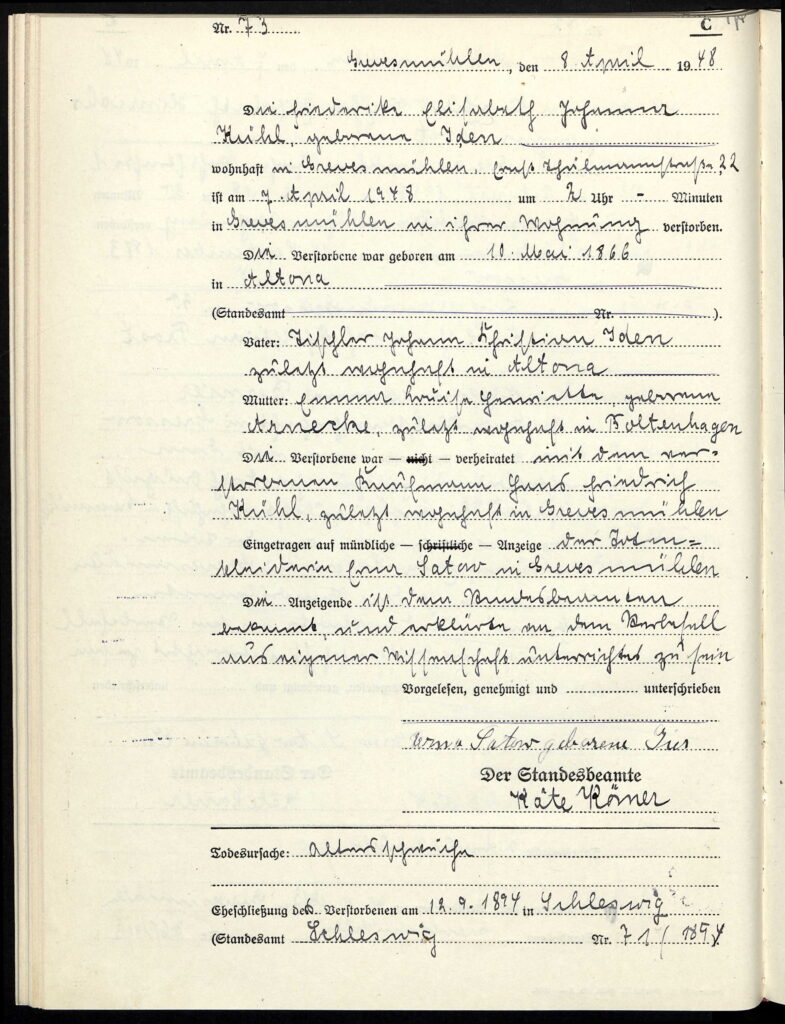 Nr. 73
C
Grevesmühlen, den 8. April 1948
Die Friederike Elisabeth Johanna
Kühl, geborene Iden
wohnhaft in Grevesmühlen, Ernst Thälmannstraße 22
ist am 7. April 1948 um 2 Uhr - Minuten
in Grevesmühlen in ihrer Wohnung verstorben.
Die Verstorbene war geboren am 10. Mai 1866
in Altona
(Standesamt Nr. ).
Vater: Tischler Johann Christian Iden
zuletzt wohnhaft in Altona
Mutter: Emma Louise Henriette, geborene
Arnecke, zuletzt wohnhaft in Boltenhagen
Die Verstorbene war — nicht — verheiratet mit dem ver-
storbenen Kaufmann Hans Friedrich
Kühl, zuletzt wohnhaft in Grevesmühlen
Eingetragen auf mündliche — schriftliche — Anzeige der Toten-
kleiderin Erna Satow in Grevesmühlen
Die Anzeigende ist dem Standesbeamten
bekannt, und erklärte von dem Sterbefall
aus eigener Wissenschaft unterrichtet zu sein
Vorgelesen, genehmigt und unterschrieben
Erna Satow geborene
Der Standesbeamte
Käte Körner
Todesursache: Altersschwäche
Eheschließung der Verstorbenen am 12.9.1894 in Schleswig
(Standesamt Schleswig Nr. 71/1894